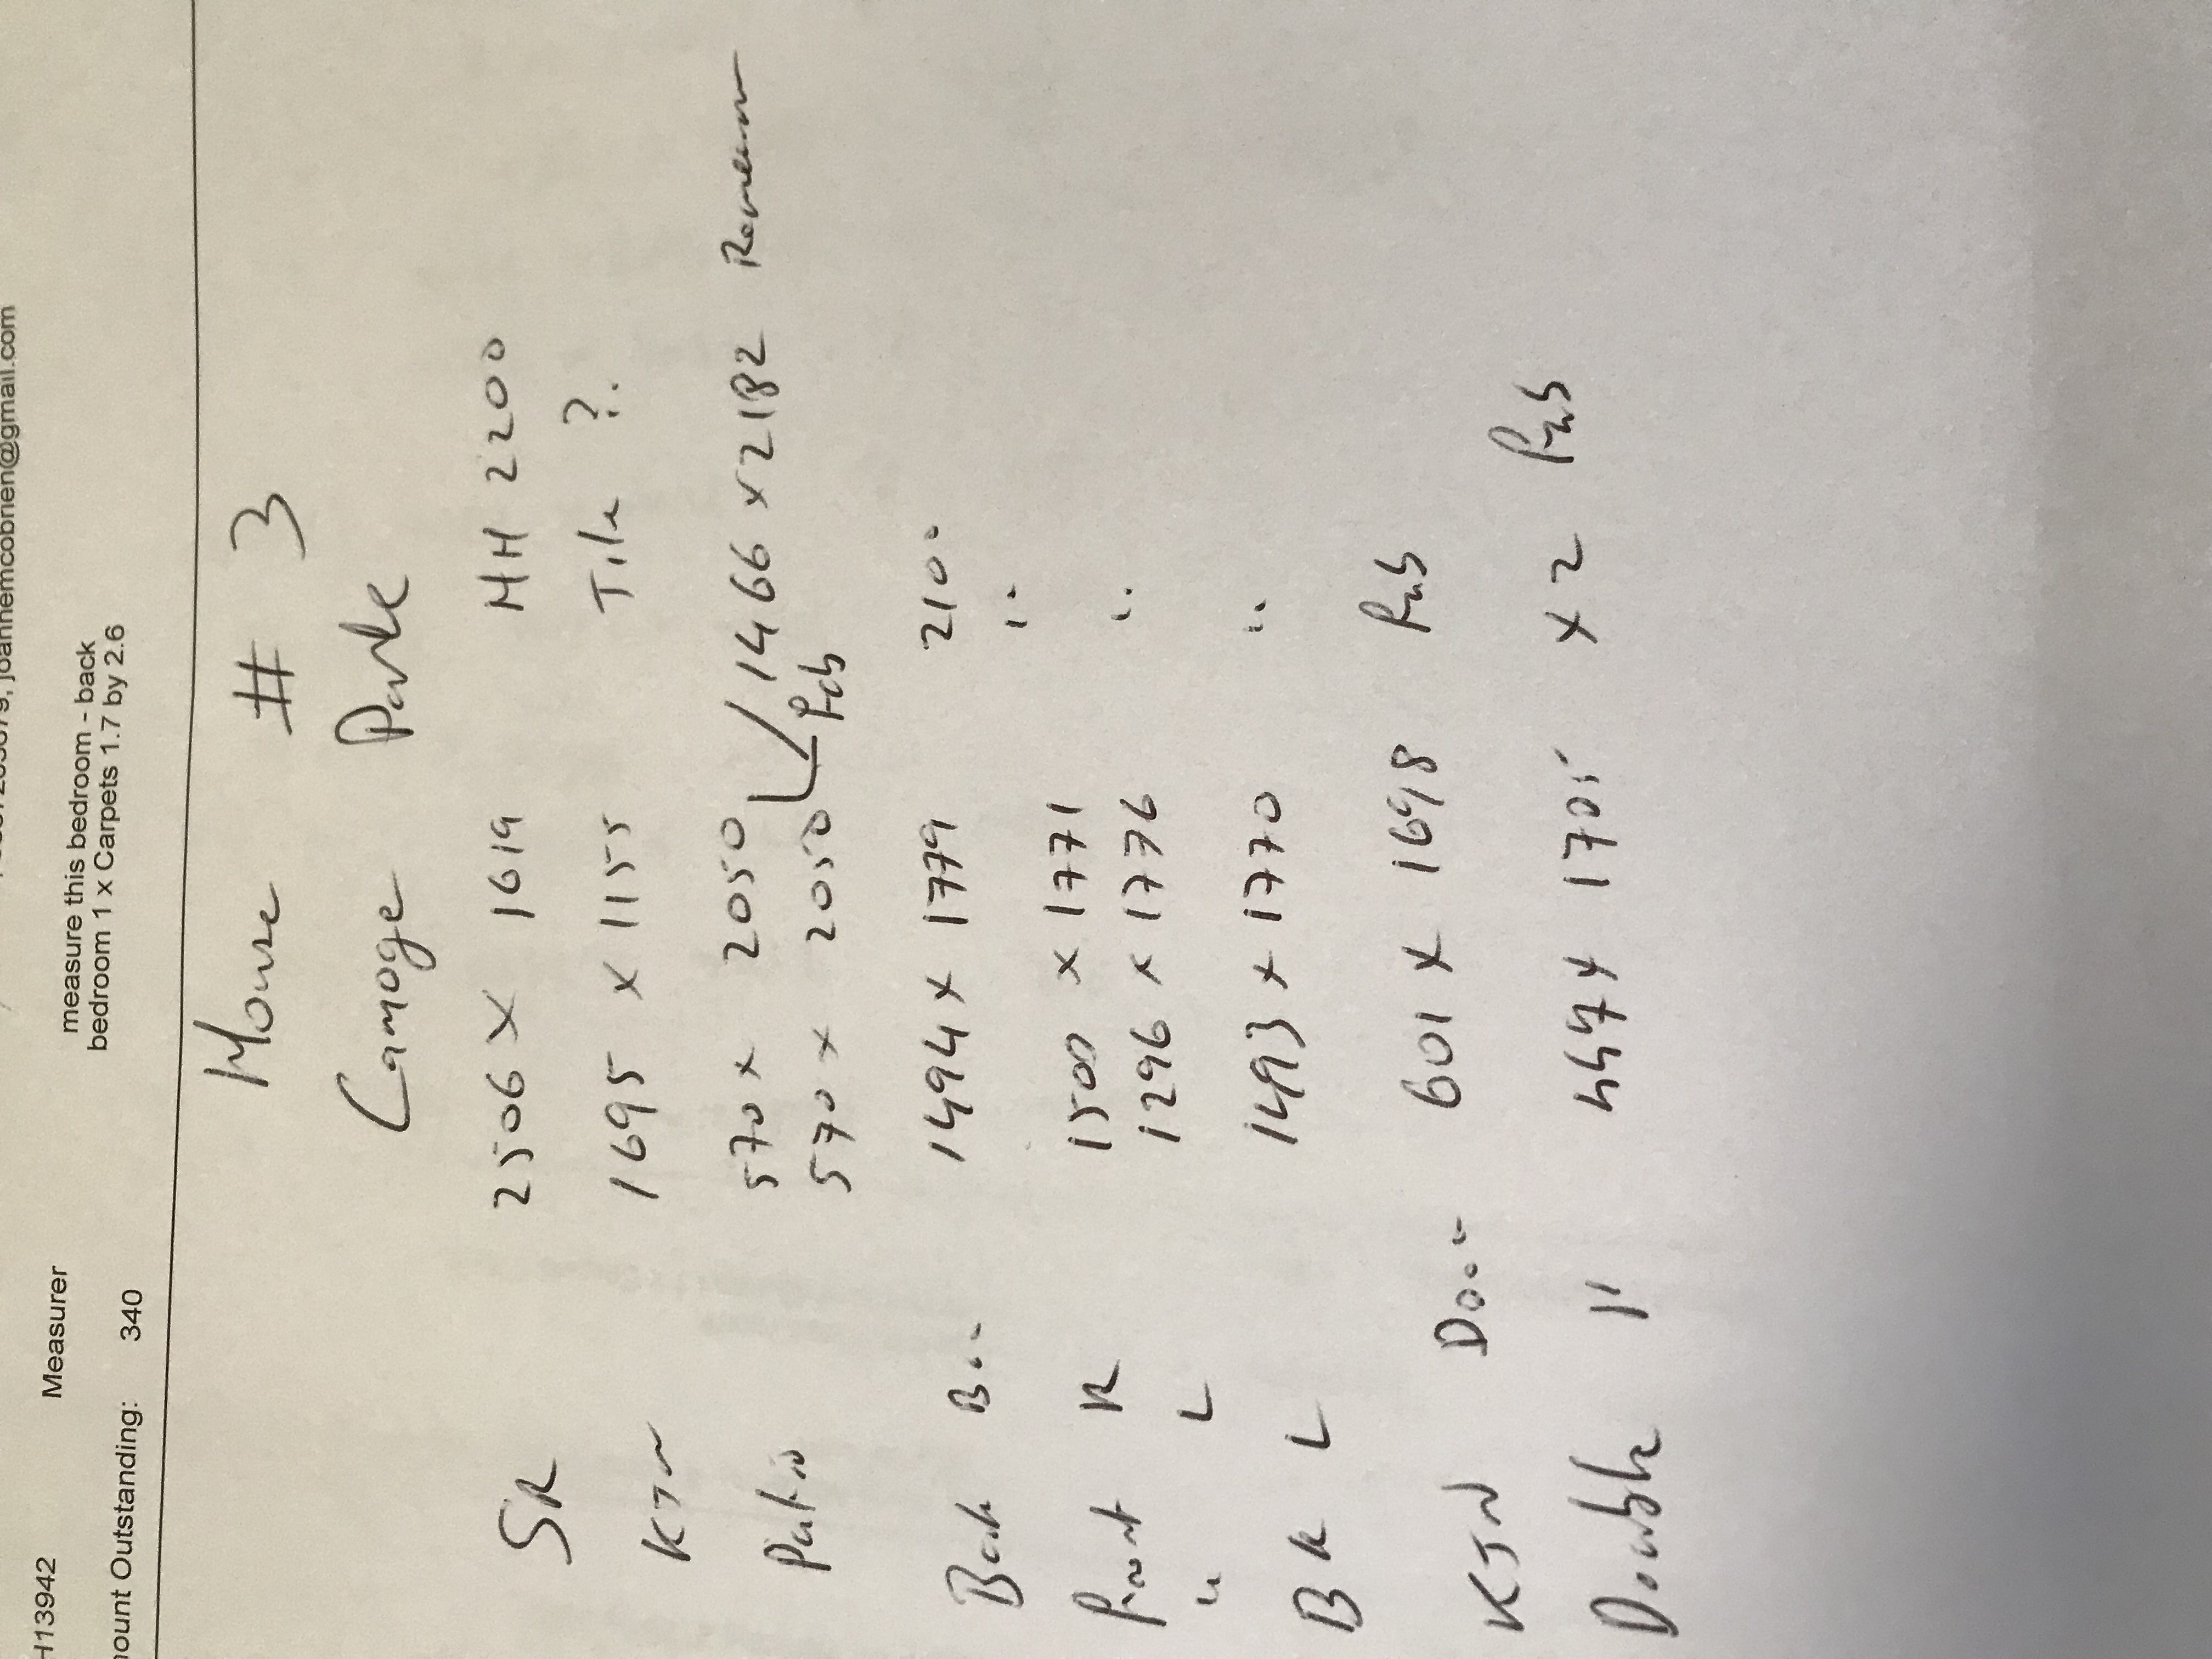 joannemcobrien@gmail.com
measure this bedroom - back
H13942 Measurer bedroom 1 x Carpets 1.7 by 2.6
mount Outstanding: 340
House # 3
Camoge Park
SR 2506 X 1619 HH 2200
KTN 1695 X 1155 Tile ?
Patio 570 x 2050 1466 x 2182
570 x 2050
Back 1494 x 1779 2100
Front R 1500 x 1771 "
" L 1296 x 1776 "
BK L 1493 x 1770 "
KTN Door 601 x 1698
Double " 447 x 1705 x 2